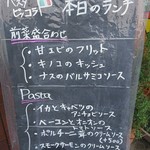 パスタ
ピッコラ
本日のランチ
前菜盛合わせ
・甘エビのフリット
・キノコのキッシュ
・ナスのバルサミコソース
Pasta
・イカとキャベツの
アンチョビソース
・ベーコンとオニオンの
トマトソース
・ポルチーニ茸のクリームソース
(+500)
・スモークサーモンのクリームソース